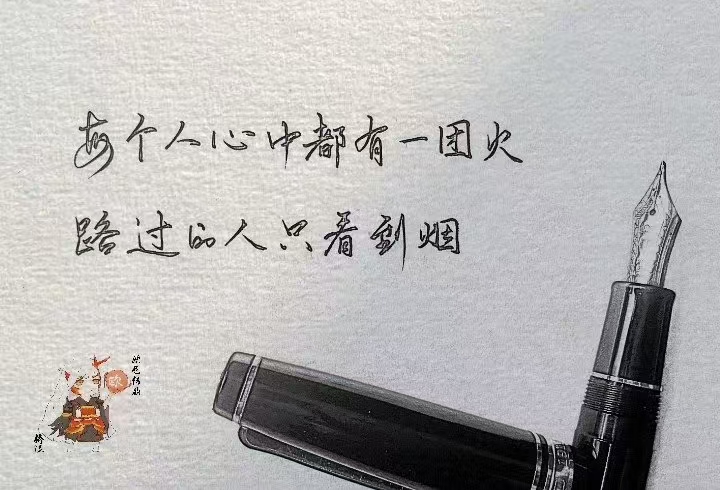 每个人心中都有一团火
路过的人只看到烟